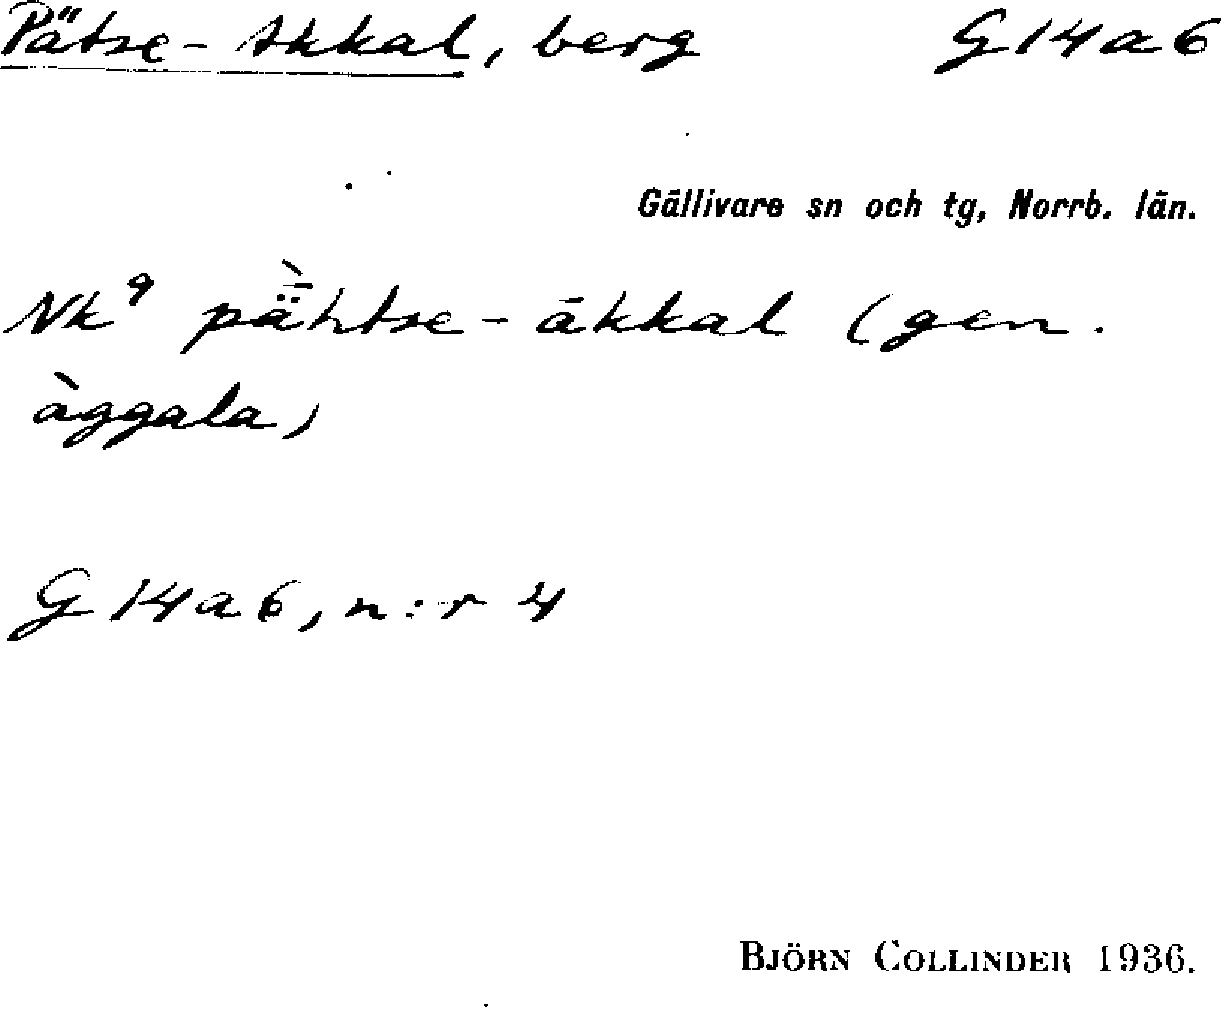 Pätse-Akkal, berg G14a6
Gällivare sn och tg, Norrb. län.
Nk⁹ pǟ̀htse-ākkal (gen.
àggala)
G14a6, n:r 4
BJÖRN COLLINDER 1936.